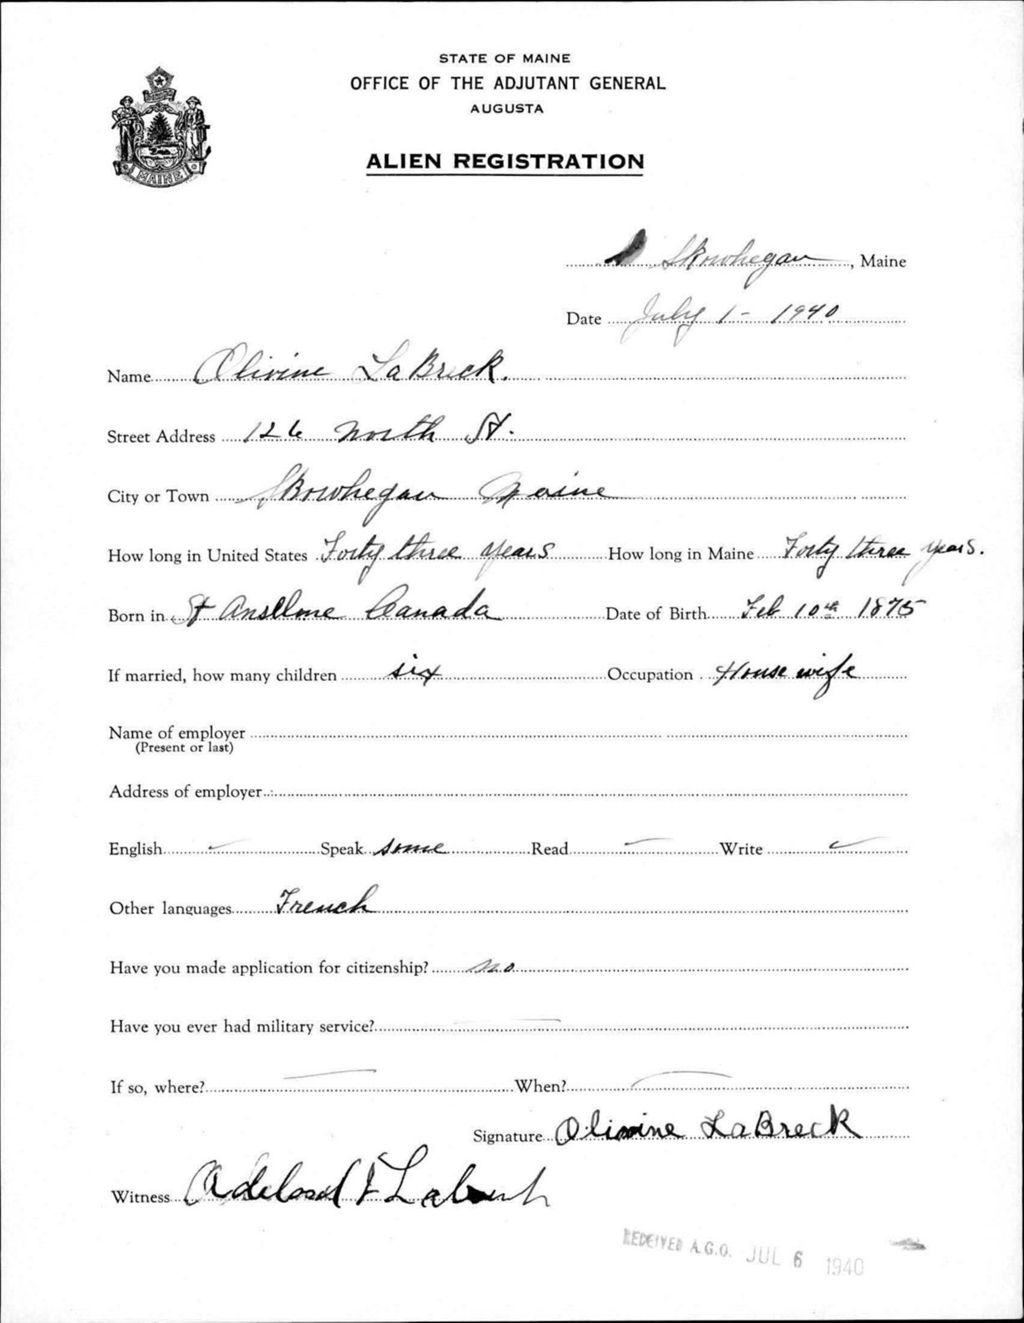 STATE OF MAINE
OFFICE OF THE ADJUTANT GENERAL
AUGUSTA
ALIEN REGISTRATION
MAINE
Skowhegan, Maine
Date July 1 - 1940
Name Olivine LaBreck.
Street Address 126 North St.
City or Town Skowhegan Maine
How long in United States Forty three years How long in Maine Forty three years.
Born in St Ansellme Canada Date of Birth Feb 10th 1875
If married, how many children six Occupation House wife
Name of employer
(Present or last)
Address of employer
English Speak some Read Write
Other languages French
Have you made application for citizenship? no
Have you ever had military service?
If so, where? When?
Signature Olivine LaBreck
Witness
RECEIVED A.G.O. JUL 6 1940